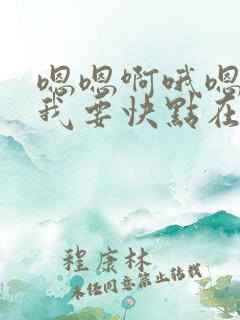 嗯嗯啊哦嗯
我要快點在
程康林
未经同意禁止转载